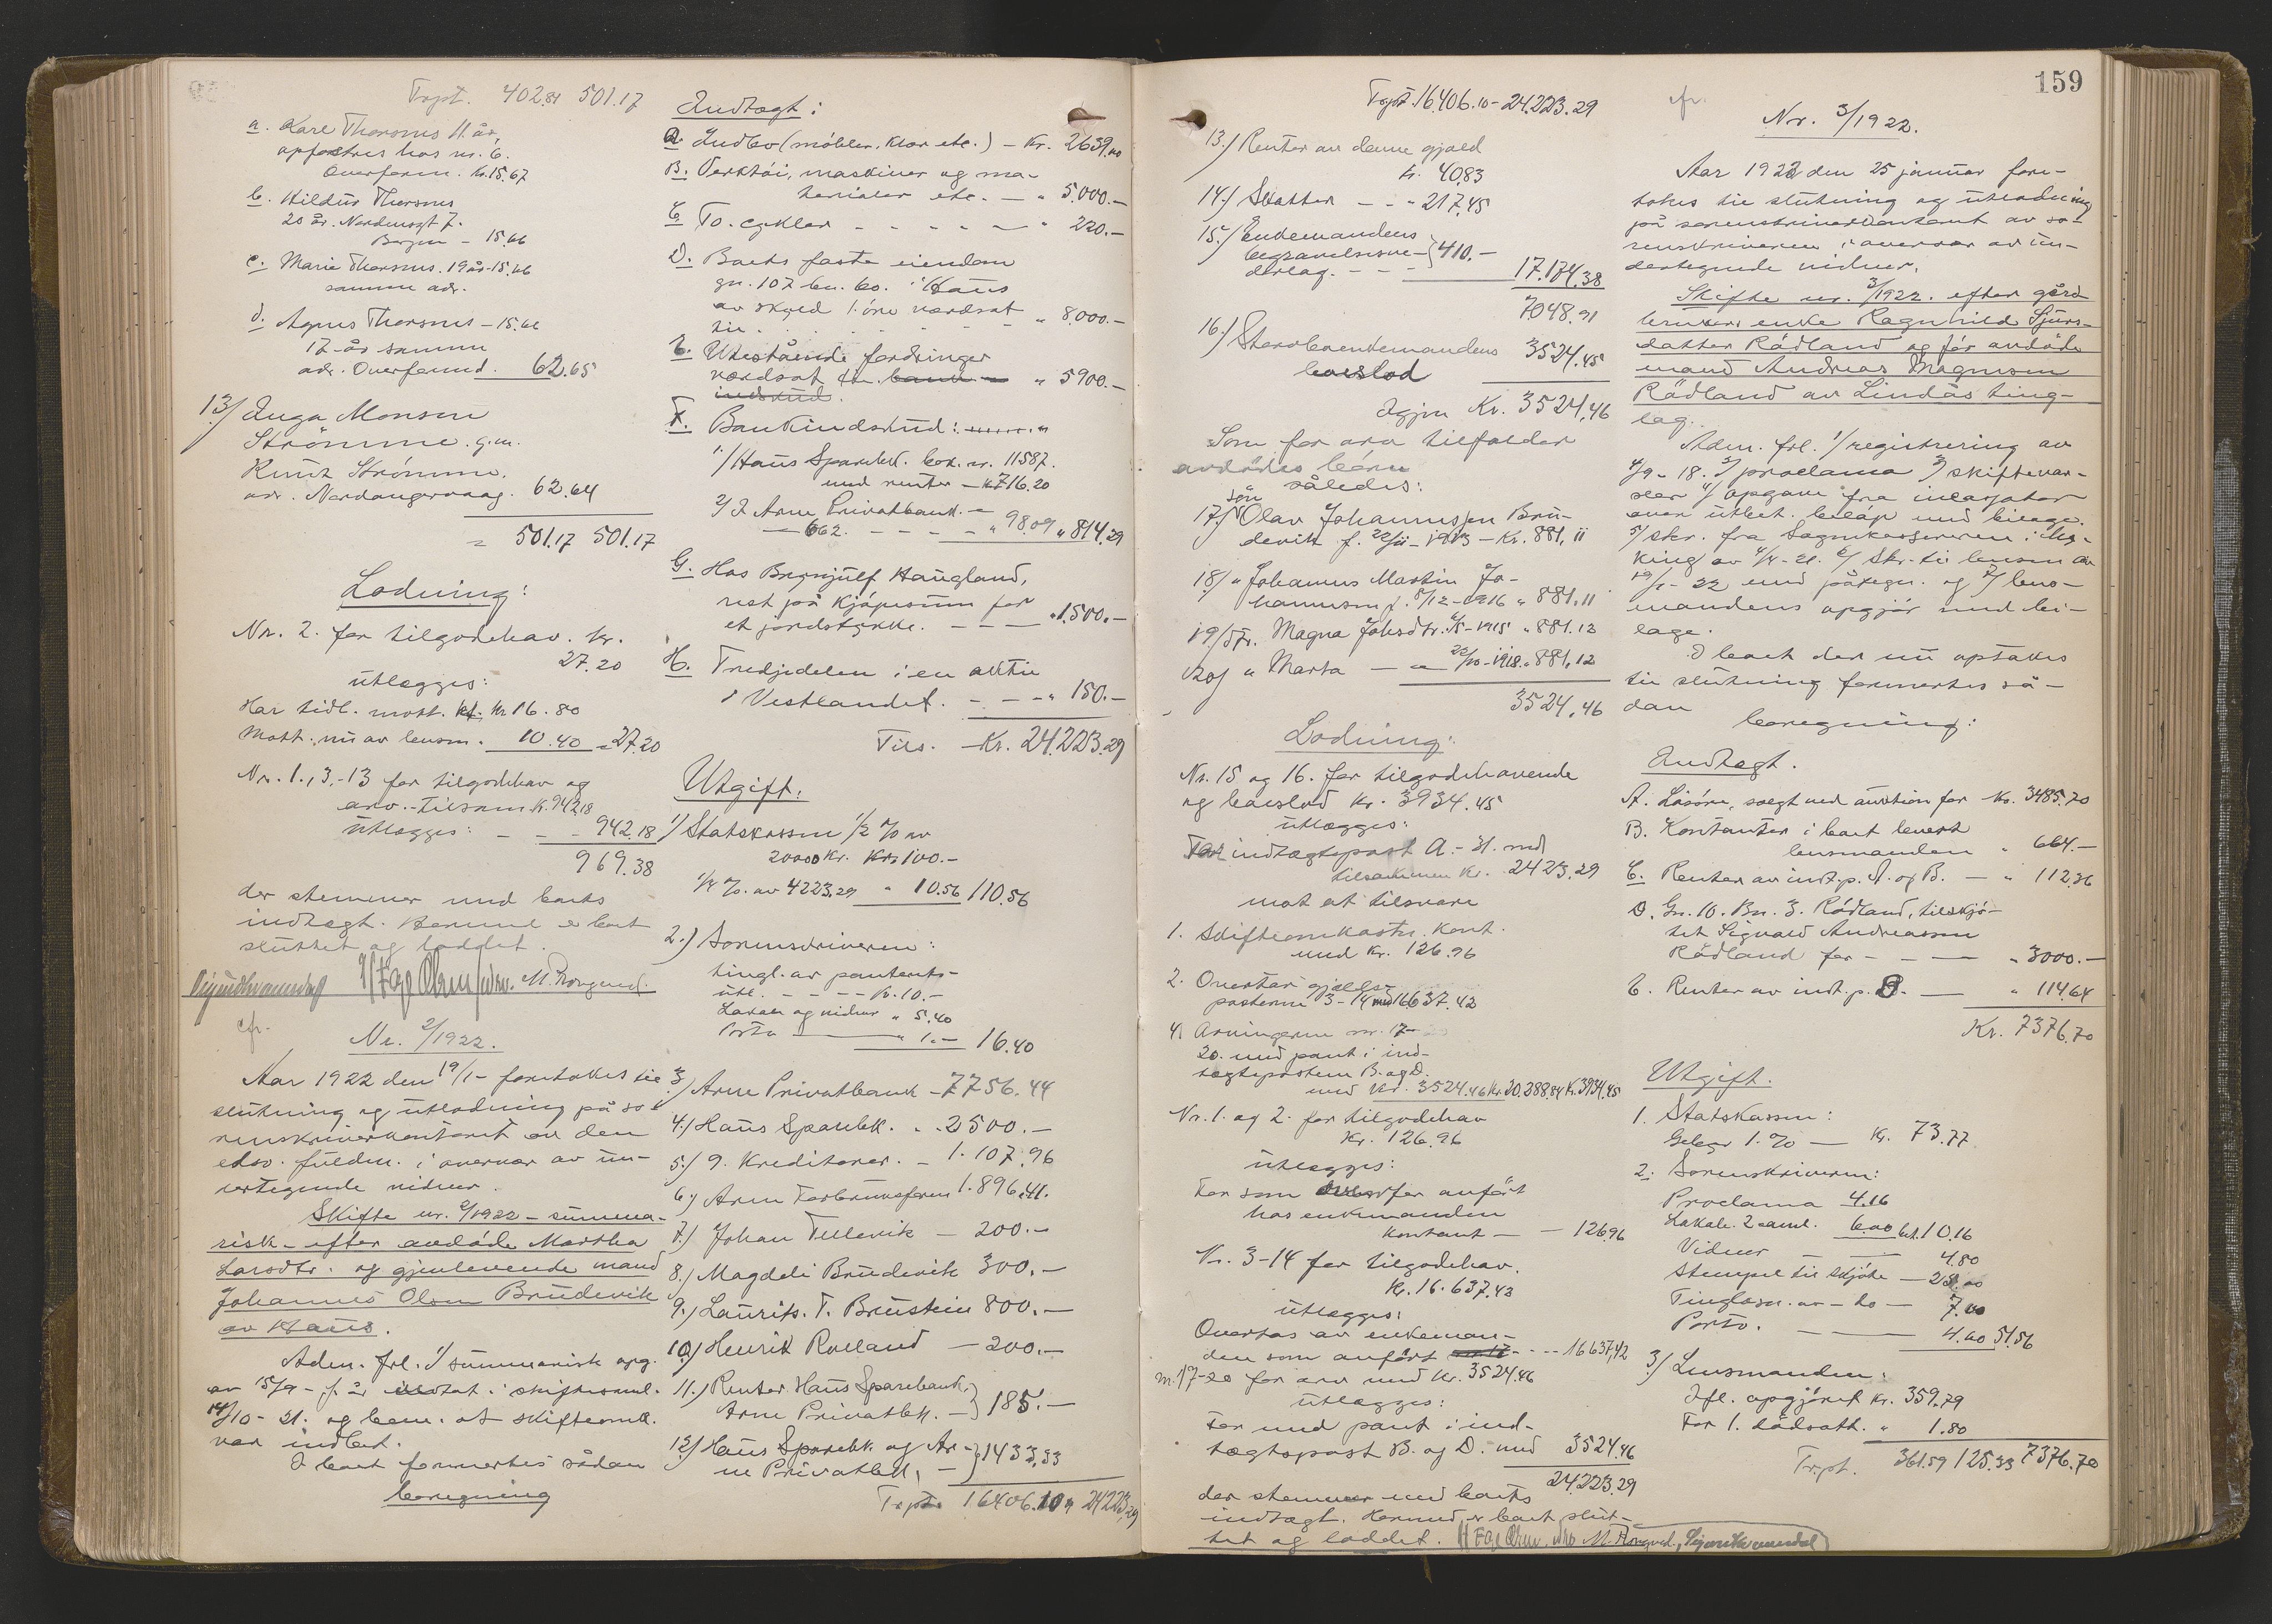 Trpt. 402.81 501.17
a. Kare Thorsnes 11 år,
opfostres hos nr. 6.
Overform. Kr. 15.67
b. Hildur Thorsnes
20 år. Nordnesgt 7.
Bergen - 15.66
c. Marie Thorsnes. 19 år - 15.66
samme adr.
d. Agnes Thorsnes - 15.66
17 år samme
adr. Overformd. 62.65
13/ Inga Monsen
Strömme. g.m.
Knut Strömme.
adr. Nordangervaag. 62.64
= 501.17 501.17
Lodning:
Nr. 2. for tilgodehav. kr.
27.20
utlægges:
Har tidl. mott. kr 16.80
Mott. nu av lensm. 10.40 = 27.20
Nr. 1., 3.-13 for tilgodehav og
arv. - tilsam. Kr. 942.18
utlægges: - - - 942.18
969.38
der stemmer med boets
indtægt. Hermed er boet
sluttet og loddet.
M. Rongved.
cfr.
Nr. 2/1922.
Aar 1922 den 19/1- foretokes til
slutning og utlodning på so-
renskriverkontoret av den
edsv. fuldm. i overvær av un-
dertegnede vidner.
Skifte nr. 2/1922 - summa-
risk - efter avdöde Martha
Larsdtr. og gjenlevende mand
Johannes Olsen Brudevik
av Haus.
Adm. frl. 1/ summarisk opg.
av 15/9 - f. år i skiftesaml.
14/10 - 21. og bem. at skifteomk.
var indbet.
I boet formertes sådan
beregning
Indtægt:
a. Indbo (möbler, klær etc.) - Kr. 2639.00
B. Verktöi, maskiner og ma-
terialer etc. - " 5.000.-
C. To. cykler - - - - - " 220.-
D. Boets faste eiendom
gn. 107 bn. 60. i Haus
av skyld 1 öre værdsat
til . . . . . " 8.000.-
E. Utestående fordringer
værdsat til " 5900.-
F. Bankindskud:
1/ Haus Sparebk. bok. nr. 11587.
med renter - kr 716.20
2/ I Arne Privatbank. -
- 662. - - - " 98.09 " 814.29
G. Hos Brynjulf Haugland,
rest på kjöpesum for
et jordstykke. - - - " 1.500.-
H. Tredjedelen i en aktie
i Vestlandet. - - - " 150.-
Tils. Kr. 24.223.29
Utgift:
1/ Statskassen 1/2 % av
20000 Kr. Kr. 100.-
1/4 %. av 4223.29 " 10.56 110.56
2.) Sorenskriveren:
tingl. av pantents-
utl. - - - - Kr. 10.-
Lokale og vidner " 5.40
Porto " 1.- 16.40
3/ Arne Privatbank - 7756.44
4.) Haus Sparebk. " 2500.-
5.) 9. Kreditorer. - 1.107.96
6.) Arne Forbruksforen 1.896.41.
7.) Johan Tellevik - 200.-
8.) Magdeli Brudevik 300.-
9.) Laurits. T. Brustein 800.-
10.) Henrik Rolland - 200.-
11.) Renter Haus Sparebank,
Arne Privatbk. - } 185.-
12.) Haus Sparebk og Ar-
ne Privatbk. - } 1433.33
Trpt. 16406.10 " 24223.29
Trpt. 16.406.10 - 24.223.29
13.) Renter av denne gjæld
kr. 40.83
14.) Skatter - - " 217.45
15.) Enkemandens
begravelsesve-
derlag. - - - } 410.- 17.174.38
7048.91
16.) Storbo enkemandens 3524.45
boeslod
Igjen Kr. 3524.46
Som for arv tilfalder
avdödes börn
således:
17/ sön Olav Johannessen Bru-
devik f. 22/11 - 1913 - Kr. 881.11
18/ " Johannes Martin Jo-
hannessen f. 8/12 - 1916 " 881.11
19/ dtr. Magna Johsdtr. 6/5 - 1915 " 881.12
20/ " Marta - " - 22/10 - 1918 " 881.12
3524.46
Lodning:
Nr. 15 og 16. for tilgodehavende
og boeslod kr. 3934.45
utlægges:
Tar indtægtspost A. - H. med
tilsammen kr. 2423.29
mot at tilsvare
1. Skifteomkostn. kont.
med Kr. 126.96
2. Overtar gjælds-
posterne 3 - 14 med 16637.42
4. Arvingerne nr. 17 -
20. med pant i ind-
tægtsposterne B. og D.
med kr. 3524.46 kr. 20.288.84 Kr. 3934.45
Nr. 1. og 2. for tilgodehav
Kr. 126.96
utlægges:
Tar som ovenfor anfört
hos enkemanden
kontant - - 126.96
Nr. 3 - 14 for tilgodehav.
Kr. 16.637.42
utlægges:
Overtas av enkeman-
den som anfört - - - 16637.42
nr. 17-20 for arv med Kr. 3524.46
utlægges:
Tar med pant i ind-
tægtspost B. og D. med 3524.46
24.223.29
der stemmer med boets
indtægt. Hermed er boet slut-
tet og loddet. M. Rongved.
159
cfr.
Nr. 3/1922.
Aar 1922 den 25 januar fore-
tokes til slutning og utlodning
på sorenskriverkontoret av so-
renskriveren i overvær av un-
dertegnede vidner.
Skifte nr. 3/1922. efter gård-
brukers enke Ragnhild Sjurs-
datter Rådland og för avdöde
mand Andreas Magnesen
Rådland av Lindås ting-
lag.
Adm. frl. 1/ registrering av
4/9 - 18. 2/ proclama 3/ skiftevar-
sler 4/ opgave fra inkassator
over utbet. belöp med bilage.
5/ skr. fra Sagnkassereren i Ho-
king av 4/4 - 21. 6/ Skr. til lensm. av
19/1 - 22 med påtegn. og 7/ lens-
mandens opgjör med bi-
lage.
I boet der nu optakes
til slutning formertes så-
dan
beregning:
Indtægt.
A. Lösöre, solgt ved auktion for Kr. 3485.70
B. Kontanter i boet levert
lensmanden " 664.-
C. Renter av indt.p. A. og B. - " 112.36
D. Gn. 10. Bn. 3. Rådland, tilskjö-
tet Sigvald Andreassen
Rådland for - - - " 3000.-
E. Renter av indt.p. D. - " 114.64
Kr. 7376.70
Utgift.
1. Statskassen:
Gebyr 1. % - Kr. 73.77
2. Sorenskriveren:
Proclama 4.16
Lokale. 2 saml. 6.00 kr. 10.16
Vidner 4.80
Stempel til skjöte - 25.00
Tinglesn. av - do - 7.00
Porto. - 4.60 51.56
3/ Lensmanden:
Ifl. opgjöret kr. 359.79
For 1. dödsatt. " 1.80
Trpt. 361.59 125.33 7376.70